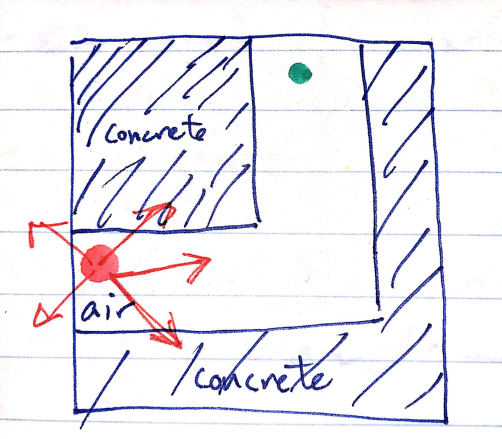 concrete
air
concrete